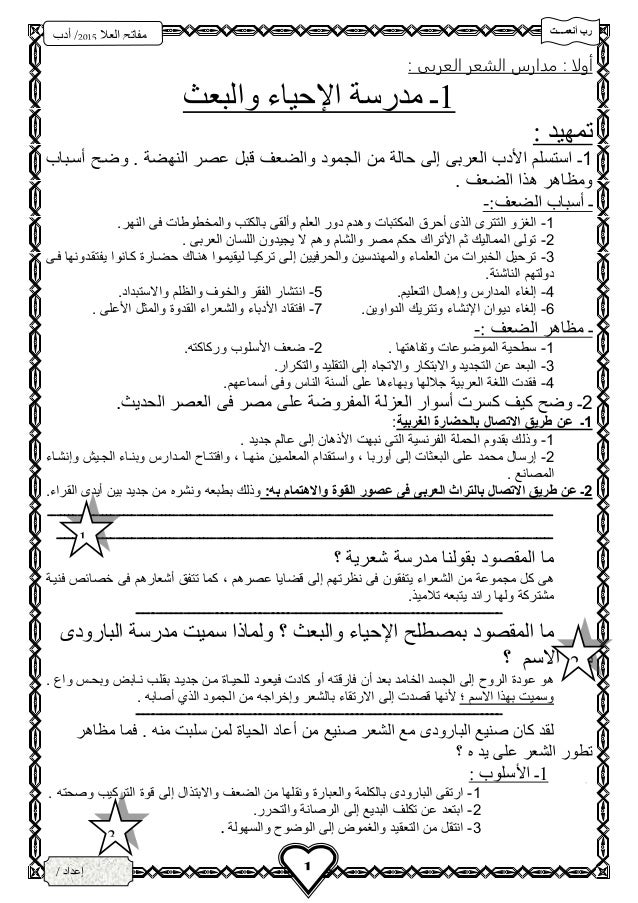 رب أنعمت
مفاتح العلا 2015/ أدب
أولا : مدارس الشعر العربى :
1- مدرسة الإحياء والبعث
تمهيد :
1- استسلم الأدب العربى إلى حالة من الجمود والضعف قبل عصر النهضة . وضح أسباب
ومظاهر هذا الضعف .
- أسباب الضعف:-
1- الغزو التترى الذى أحرق المكتبات وهدم دور العلم وألقى بالكتب والمخطوطات فى النهر.
2- تولى المماليك ثم الأتراك حكم مصر والشام وهم لا يجيدون اللسان العربى .
3- ترحيل الخبرات من العلماء والمهندسين والحرفيين إلى تركيا ليقيموا هناك حضارة كانوا يفتقدونها فى
دولتهم الناشئة.
4- إلغاء المدارس وإهمال التعليم. 5- انتشار الفقر والخوف والظلم والاستبداد.
6- إلغاء ديوان الإنشاء وتتريك الدواوين. 7- افتقاد الأدباء والشعراء القدوة والمثل الأعلى .
- مظاهر الضعف :-
1- سطحية الموضوعات وتفاهتها . 2- ضعف الأسلوب وركاكته.
3- البعد عن التجديد والابتكار والاتجاه إلى التقليد والتكرار.
4- فقدت اللغة العربية جلالها وبهاءها على ألسنة الناس وفى أسماعهم.
2- وضح كيف كسرت أسوار العزلة المفروضة على مصر فى العصر الحديث.
1- عن طريق الاتصال بالحضارة الغربية:
1- وذلك بقدوم الحملة الفرنسية التى نبهت الأذهان إلى عالم جديد .
2- إرسال محمد على البعثات إلى أوربا ، واستقدام المعلمين منها ، وافتتاح المدارس وبناء الجيش وإنشاء
المصانع .
2- عن طريق الاتصال بالتراث العربى فى عصور القوة والاهتمام به: وذلك بطبعه ونشره من جديد بين أيدى القراء.
1
ما المقصود بقولنا مدرسة شعرية ؟
هى كل مجموعة من الشعراء يتفقون فى نظرتهم إلى قضايا عصرهم ، كما تتفق أشعارهم فى خصائص فنية
مشتركة ولها رائد يتبعه تلاميذ.
ما المقصود بمصطلح الإحياء والبعث ؟ ولماذا سميت مدرسة البارودى
الاسم ؟
هو عودة الروح إلى الجسد الخامد بعد أن فارقته أو كادت فيعود للحياة من جديد بقلب نابض وبحس واع .
وسميت بهذا الاسم ؛ لأنها قصدت إلى الارتقاء بالشعر وإخراجه من الجمود الذي أصابه .
لقد كان صنيع البارودى مع الشعر صنيع من أعاد الحياة لمن سلبت منه . فما مظاهر
تطور الشعر على يد ه ؟
1- الأسلوب :
1- ارتقى البارودى بالكلمة والعبارة ونقلها من الضعف والابتذال إلى قوة التركيب وصحته .
2- ابتعد عن تكلف البديع إلى الرصانة والتحرر.
3- انتقل من التعقيد والغموض إلى الوضوح والسهولة .
2
1
إعداد /